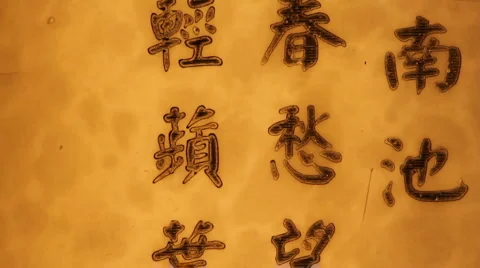 南池
春愁望
輕蘋葉